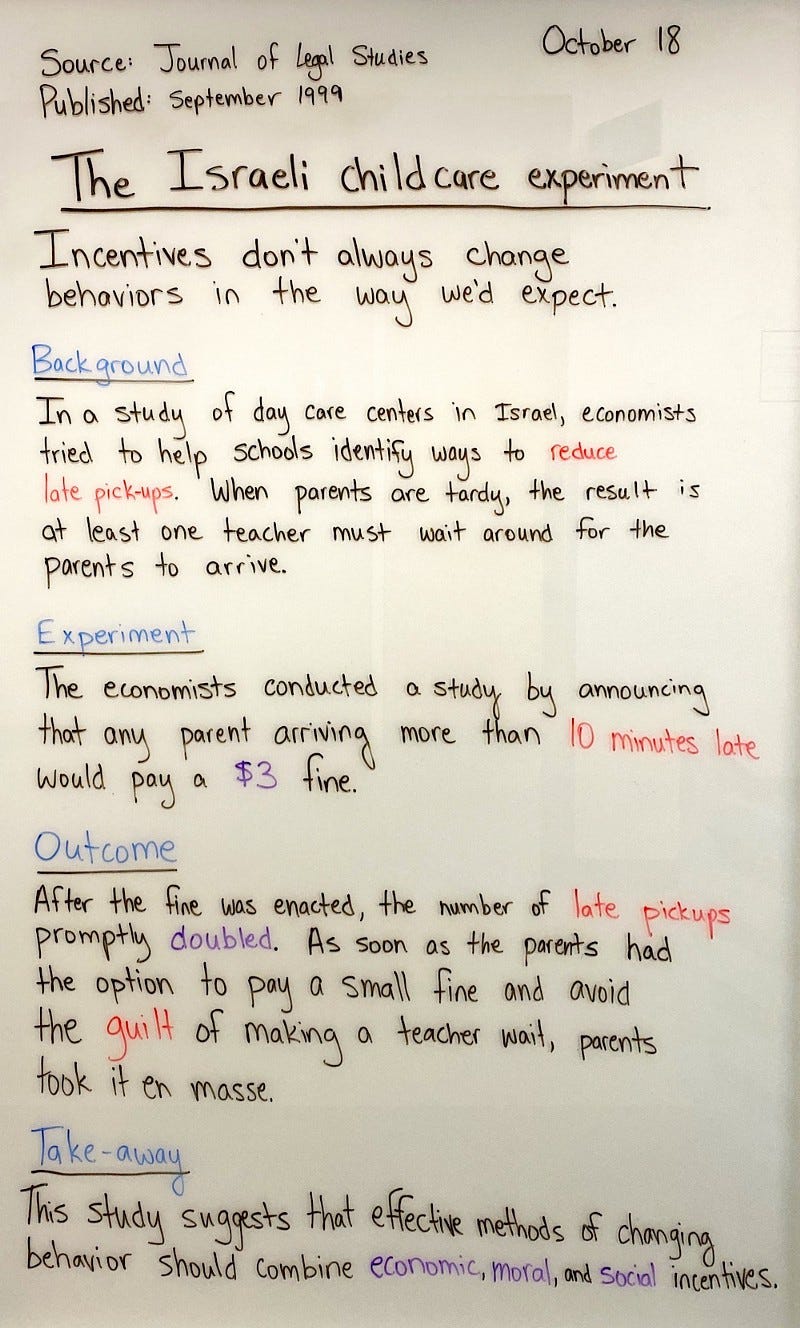 October 18
Source: Journal of Legal Studies
Published: September 1999
The Israeli childcare experiment
Incentives don't always change
behaviors in the way we'd expect.
Background
In a study of day care centers in Israel, economists
tried to help schools identify ways to reduce
late pick-ups. When parents are tardy, the result is
at least one teacher must wait around for the
parents to arrive.
Experiment
The economists conducted a study by announcing
that any parent arriving more than 10 minutes late
would pay a $3 fine.
Outcome
After the fine was enacted, the number of late pickups
promptly doubled. As soon as the parents had
the option to pay a small fine and avoid
the guilt of making a teacher wait, parents
took it en masse.
Take-away
This study suggests that effective methods of changing
behavior should combine economic, moral, and social incentives.